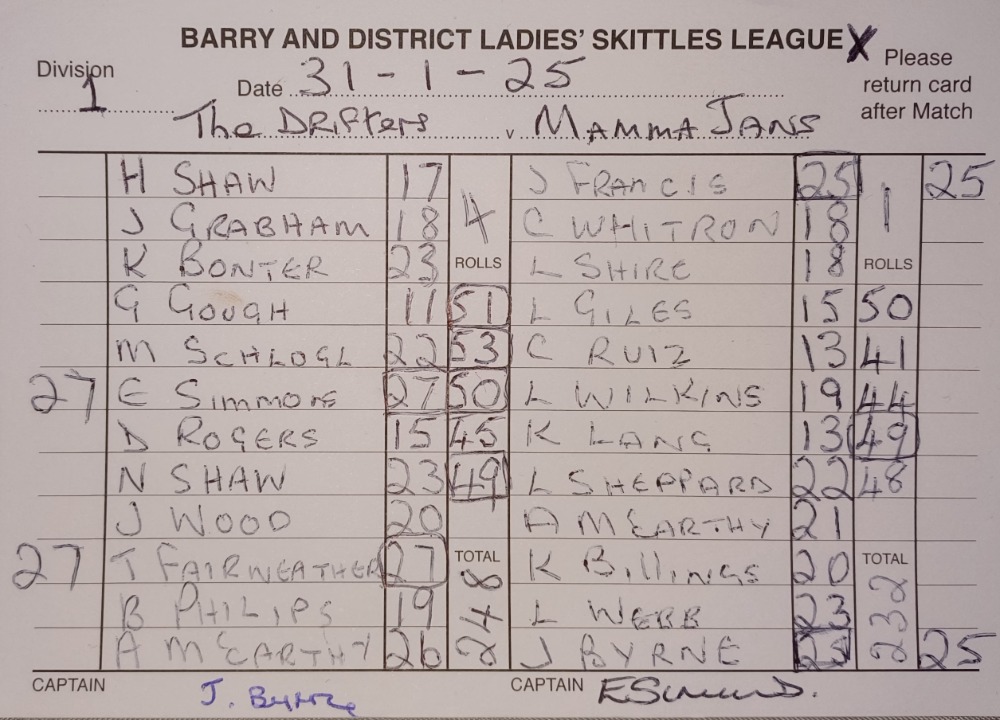 BARRY AND DISTRICT LADIES' SKITTLES LEAGUE X
Please return card after Match
Division 1
Date 31-1-25
The DRifters v MAMMA JANS
H SHAW 17 4 J FRANCIS 25 1 25
J GRABHAM 18 C WHITRON 18
K BONTER 23 ROLLS L SHIRE 18 ROLLS
G GOUGH 11 51 L GILES 15 50
M SCHLOGL 22 53 C RUIZ 13 41
27 E SIMMONS 27 50 L WILKINS 19 44
D ROGERS 15 45 K LANG 13 49
N SHAW 23 49 L SHEPPARD 22 48
J WOOD 20 A MCARTHY 21
27 T FAIRWEATHER 27 TOTAL 248 K BILLINGS 20 TOTAL 232
B PHILIPS 19 L WEBB 23
A MCARTHY 26 J BYRNE 25 25
CAPTAIN J. Byrne CAPTAIN